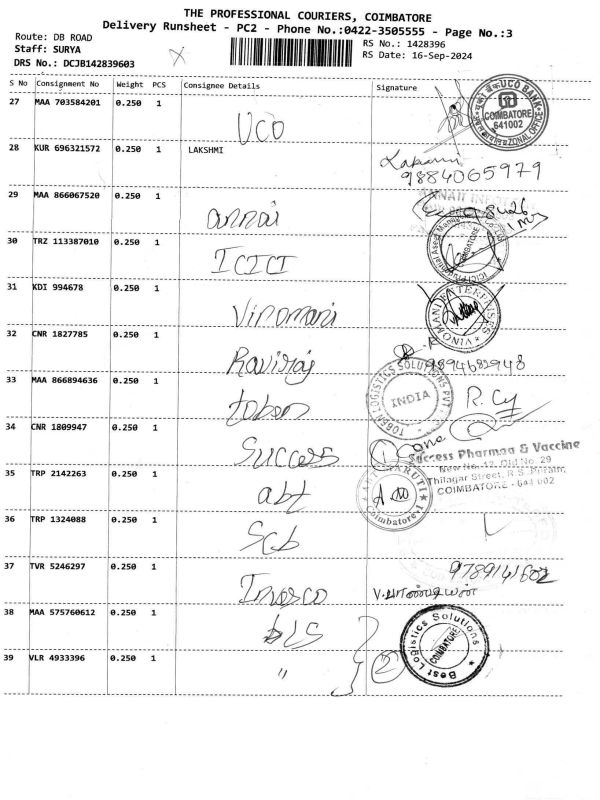 THE PROFESSIONAL COURIERS, COIMBATORE
Delivery Runsheet - PC2 - Phone No.:0422-3505555 - Page No.:3
Route: DB ROAD
RS No.: 1428396
Staff: SURYA
RS Date: 16-Sep-2024
DRS No.: DCJB142839603
S No Consignment No Weight PCS Consignee Details Signature
27 MAA 703584201 0.250 1 UCO
UCO BANK COIMBATORE 641002 ZONAL OFFICE
28 KUR 696321572 0.250 1 LAKSHMI
9884065979
29 MAA 866067520 0.250 1 annai
30 TRZ 113387010 0.250 1 ICICI
31 KDI 994678 0.250 1 Vinomani
VINOMANI ENTERPRISES
32 CNR 1827785 0.250 1 Raviraj
9894682948
33 MAA 866894636 0.250 1 toben
TOBEN LOGISTICS SOLUTIONS PVT INDIA
R. Cy
34 CNR 1809947 0.250 1 Success
Success Pharmaa & Vaccine
New No. 12, Old No. 29
Thilagar Street, R.S. Puram,
COIMBATORE - 641 002
35 TRP 2142263 0.250 1 abt
MARUTI Coimbatore-1
36 TRP 1324088 0.250 1 Scb
37 TVR 5246297 0.250 1
9789141602
38 MAA 575760612 0.250 1 bLS
Best Logistics Solutions COIMBATORE
39 VLR 4933396 0.250 1 "
2